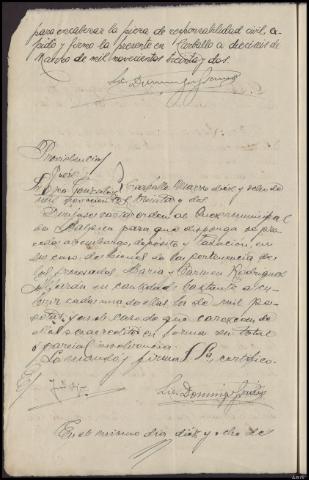 para encabezar la pieza de responsabilidad civil, ex-
pido y firmo la presente en Carballo a dieciseis de
Marzo de mil novecientos treinta y dos.
Providencia
Juez
Carballo Marzo diez y ocho de
mil novecientos treinta y dos
Dirijase carta orden al Juez municipal
de Malpica para que disponga se pro-
ceda al embargo, depósito y tasación, en
su caso, de bienes de la pertenencia de
los procesados Maria y Carmen Rodriguez
en cantidad bastante a cu-
brir cada una de ellas la de mil pe-
setas, y caso de que carezcan de
ellos se acredite en forma su total
o parcial insolvencia.
Lo mandó y firma S Sª, certifico.
En el mismo dia diez y ocho de